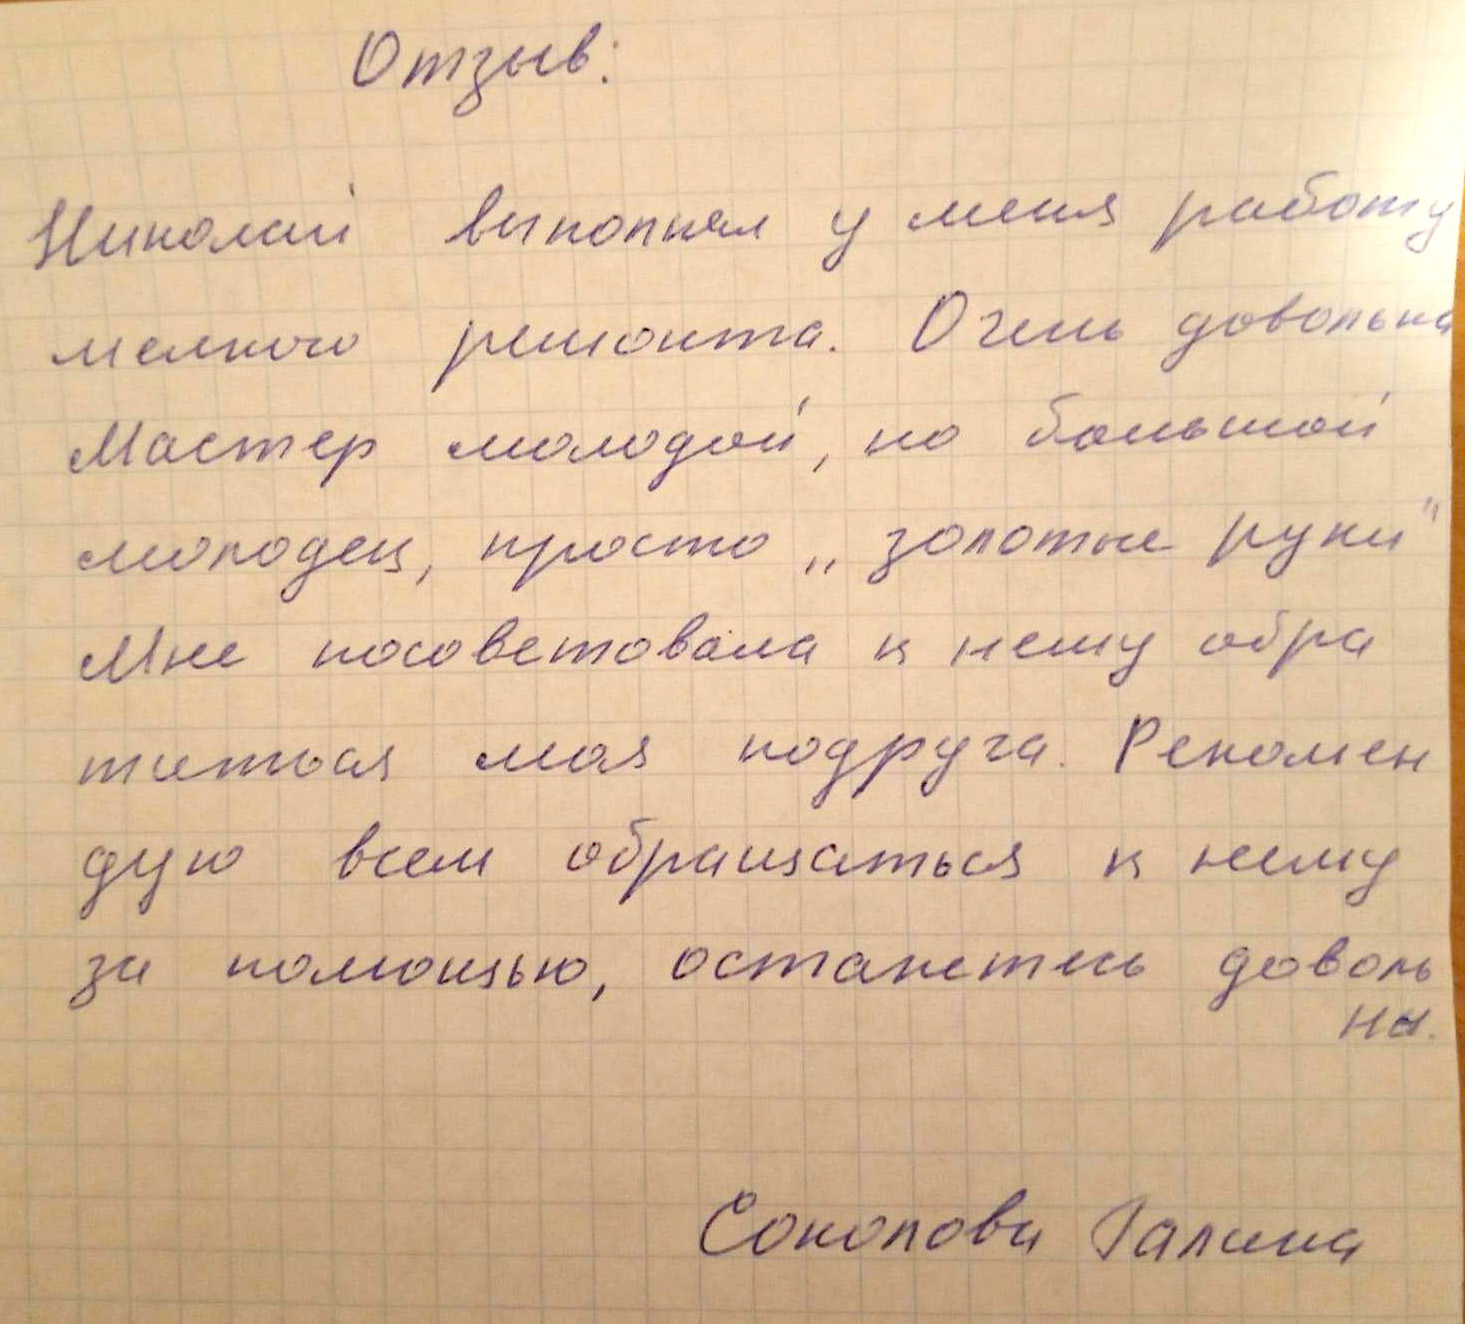 Отзыв:
Николай выполнял у меня работу
мелкого ремонта. Очень довольна
Мастер молодой, но большой
молодец, просто „золотые руки"
Мне посоветовала к нему обра
титься моя подруга. Рекомен
дую всем обращаться к нему
за помощью, останетесь доволь
ны.
Соколова Галина